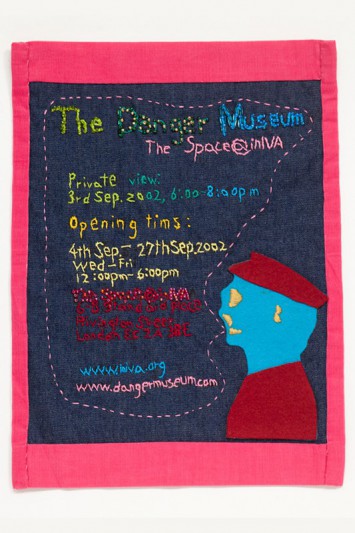 The Danger Museum
The Space@inIVA
Private view:
3rd Sep. 2002, 6:00-8:00pm
Opening tims:
4th Sep - 27th Sep. 2002
Wed-Fri
12:00pm-6:00pm
The Space@inIVA
London EC2A 3BE
www.iniva.org
www.dangermuseum.com